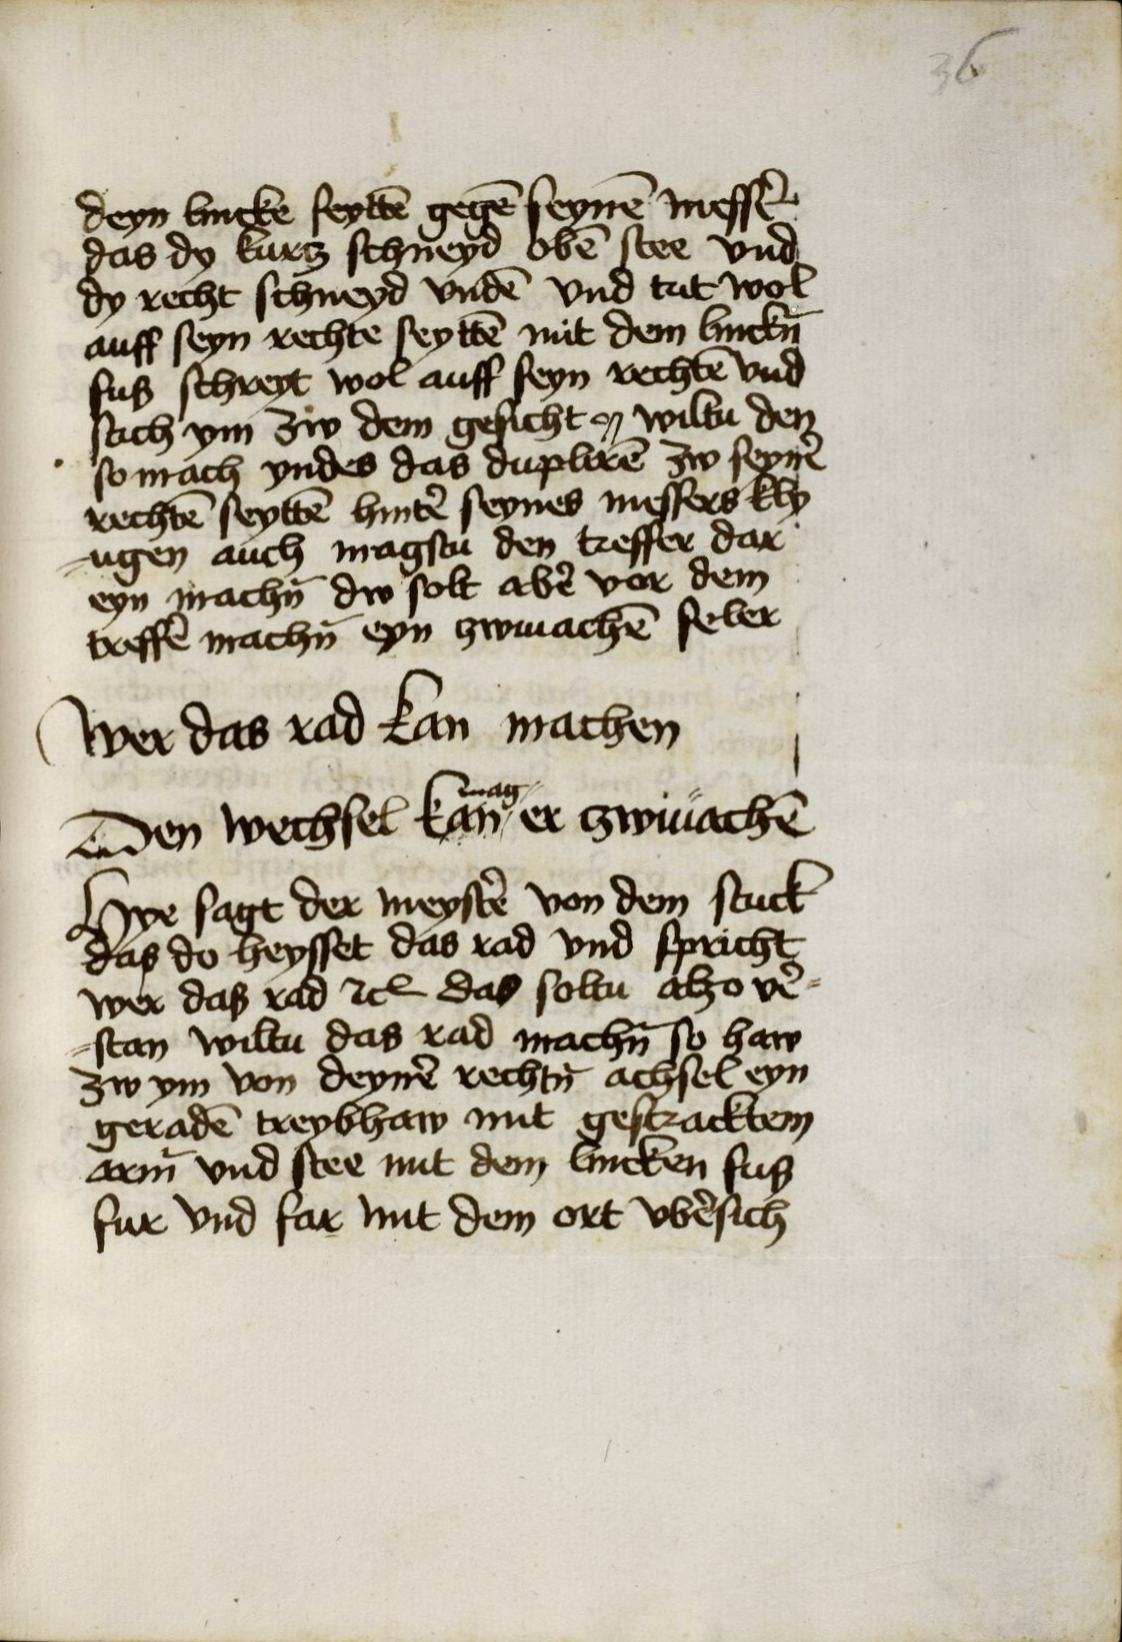 36
deyn lincke seyttē gegē seynē messer̄
das dy kurtz schneyd obē stee vnd
dy recht schneyd vndē vnd trit wol
auff seyn rechte seyttē mit dem linckn̄
fuß schreyt wol auff seyn rechtē vnd
stich ym zw dem gesicht wiltu den
so mach yndes das duplirē zw seynē
rechtē seyttē hintē seynes messers kly
=ngen auch magstu den treffer dar
eyn machn̄ dw solt abē vor dem
treffē machn̄ eyn zwuachē feler
Wer das rad kan machen
Den wechsel kan mag er zwiuachē
Hye sagt der meystē von dem stuck
daß do heysset das rad vnd spricht
wer daß rad ⁊cͣ das soltu alzo vē=
=stan wiltu das rad machn̄ so haw
zw ym von deynē rechtn̄ achsel eyn
geradē treybhaw mit gestracktem
arm̄ vnd stee mit dem lincken fuß
fur vnd far mit dem ort vbēsich